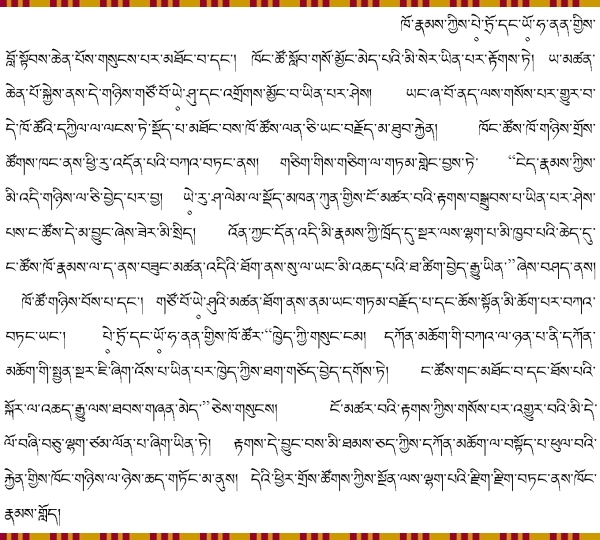 ཁོ་རྣམས་ཀྱིས་པེ་ཏྲོ་དང་ཡོ་ཧ་ནན་གྱིས་
བློ་སྟོབས་ཆེན་པོས་གསུངས་པར་མཐོང་བ་དང་། ཁོང་ཚོ་སློབ་གསོ་མྱོང་མེད་པའི་མི་སེར་ཡིན་པར་རྟོགས་ཏེ། ཡ་མཚན་
ཆེན་པོ་སྐྱེས་ནས་དེ་གཉིས་གཙོ་བོ་ཡེ་ཤུ་དང་འགྲོགས་མྱོང་བ་ཡིན་པར་ཤེས། ཡང་ཞ་བོ་ནད་ལས་གསོས་པར་གྱུར་བ་
དེ་ཁོ་ཚོའི་དཀྱིལ་ལ་ལངས་ཏེ་སྡོད་པ་མཐོང་བས་ཁོ་ཚོས་ལན་ཅི་ཡང་བརྗོད་མ་ཐུབ་རྐྱེན། ཁོང་ཚོས་ཁོ་གཉིས་གྲོས་
ཚོགས་ཁང་ནས་ཕྱི་རུ་འདོན་པའི་བཀའ་བཏང་ནས། གཅིག་གིས་གཅིག་ལ་གཏམ་གླེང་བྱས་ཏེ་ “ངེད་རྣམས་ཀྱིས་
མི་འདི་གཉིས་ལ་ཅི་བྱེད་པར་བྱ། ཡེ་རུ་ཤ་ལེམ་ལ་སྡོད་མཁན་ཀུན་གྱིས་ངོ་མཚར་བའི་རྟགས་བསྒྲུབས་པ་ཡིན་པར་ཤེས་
པས་ང་ཚོས་དེ་མ་བྱུང་ཞེས་ཟེར་མི་སྲིད། འོན་ཀྱང་དོན་འདི་མི་རྣམས་ཀྱི་ཁྲོད་དུ་སྔར་ལས་ལྷག་པ་མི་ཁྱབ་པའི་ཆེད་དུ་
ང་ཚོས་ཁོ་རྣམས་ལ་ད་ནས་བཟུང་མཚན་འདིའི་ཐོག་ནས་སུ་ལ་ཡང་མི་འཆད་པའི་ཐ་ཚིག་བྱེད་རྒྱུ་ཡིན་”ཞེས་བཤད་ནས།
ཁོ་ཚོ་གཉིས་བོས་པ་དང་། གཙོ་བོ་ཡེ་ཤུའི་མཚན་ཐོག་ནས་ནམ་ཡང་གཏམ་བརྗོད་པ་དང་ཆོས་སྟོན་མི་ཆོག་པར་བཀའ་
བཏང་ཡང་། པེ་ཏྲོ་དང་ཡོ་ཧ་ནན་གྱིས་ཁོ་ཚོར་“ཁྱེད་ཀྱི་གསུང་ངམ། དཀོན་མཆོག་གི་བཀའ་ལ་ཉན་པ་ནི་དཀོན་
མཆོག་གི་སྤྱན་སྔར་ཇི་ཞིག་འོས་པ་ཡིན་པར་ཁྱེད་ཀྱིས་ཐག་གཅོད་བྱེད་དགོས་ཏེ། ང་ཚོས་གང་མཐོང་བ་དང་ཐོས་པའི་
སྐོར་ལ་འཆད་རྒྱུ་ལས་ཐབས་གཞན་མེད་”ཅེས་གསུངས། ངོ་མཚར་བའི་རྟགས་ཀྱིས་གསོས་པར་འགྱུར་བའི་མི་དེ་
ལོ་བཞི་བཅུ་ལྷག་ཙམ་ལོན་པ་ཞིག་ཡིན་ཏེ། རྟགས་དེ་བྱུང་བས་མི་ཐམས་ཅད་ཀྱིས་དཀོན་མཆོག་ལ་བསྟོད་པ་ཕུལ་བའི་
རྐྱེན་གྱིས་ཁོང་གཉིས་ལ་ཉེས་ཆད་གཏོང་མ་ནུས། དེའི་ཕྱིར་གྲོས་ཚོགས་ཀྱིས་སྔོན་ལས་ལྷག་པའི་རྫིག་རྫིག་བཏང་ནས་ཁོང་
རྣམས་གློད།